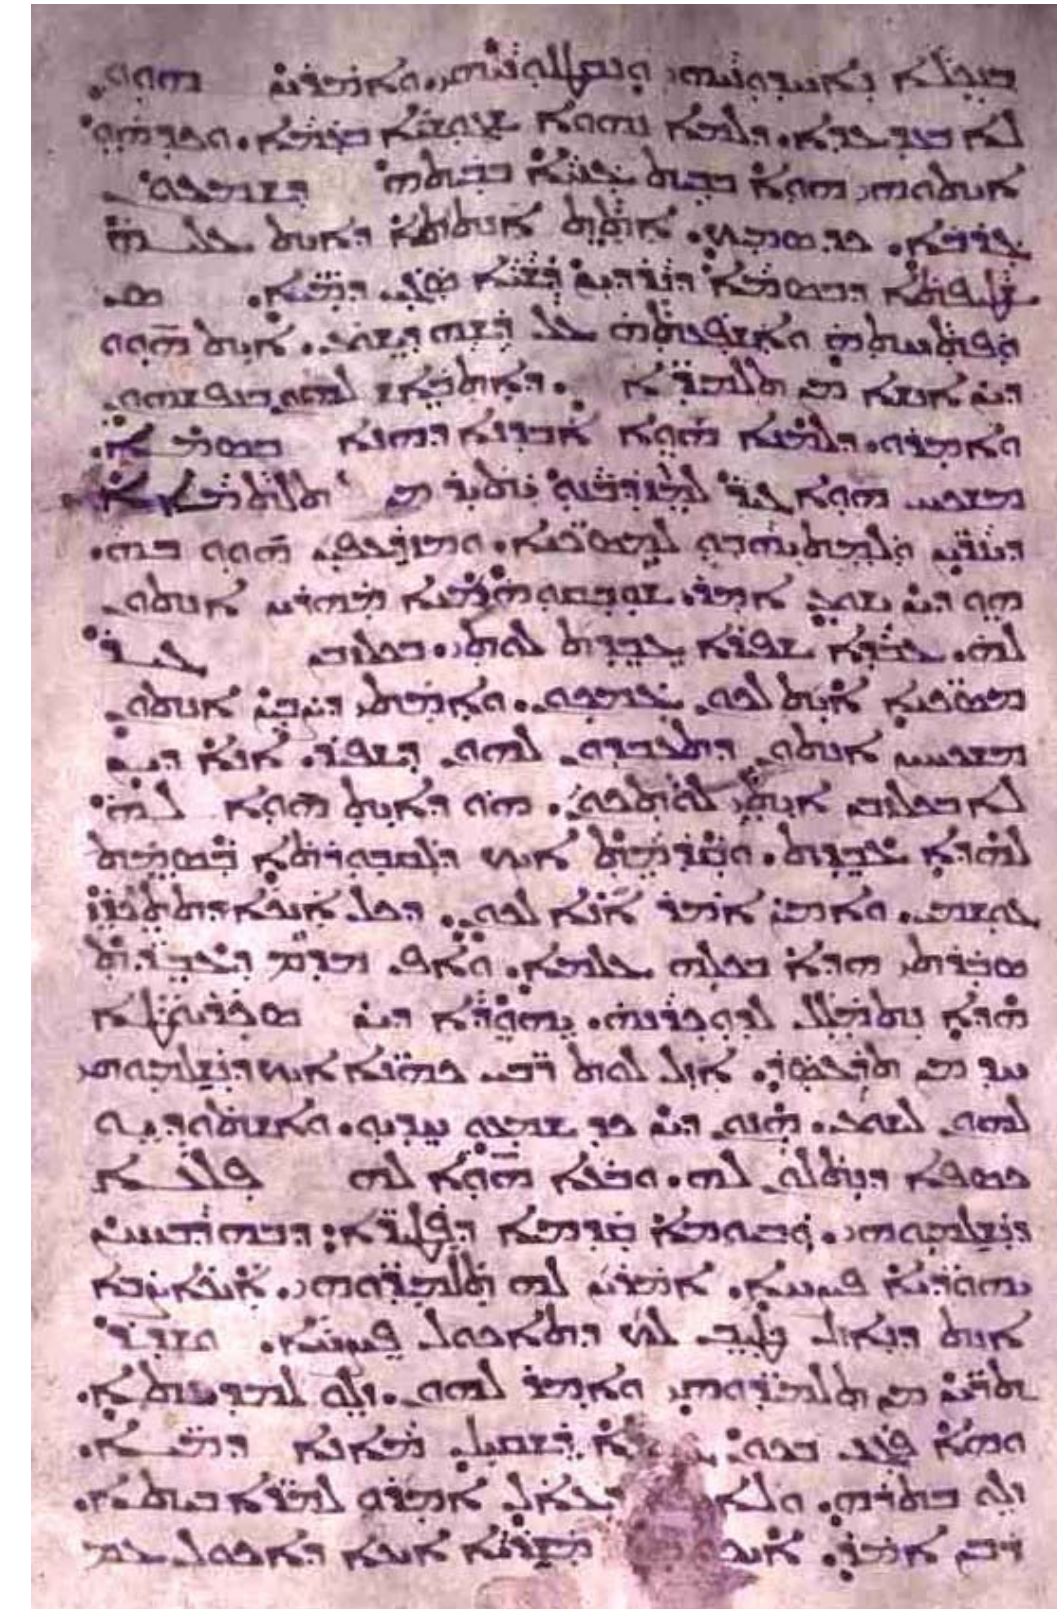 ܒܢܟܠܐ ܢܐܚܕܘܢܝܗܝ ܘܢܩܛܠܘܢܝܗܝ. ܘܐܡܪܝܢ ܗܘܘ.
ܠܐ ܒܥܕܥܕܐ. ܕܠܡܐ ܢܗܘܐ ܫܓܘܫܝܐ ܒܥܡܐ. ܘܟܕ ܗܘ
ܐܝܬܘܗܝ ܗܘܐ ܒܒܝܬ ܥܢܝܐ ܒܒܝܬܗ ܕܫܡܥܘܢ
ܓܪܒܐ. ܟܕ ܣܡܝܟ. ܐܬܬ ܐܢܬܬܐ ܕܐܝܬ ܥܠܝܗ
ܫܛܝܦܬܐ ܕܒܣܡܐ ܕܢܪܕܝܢ ܪܫܝܐ ܣܓܝ ܕܡܝܐ.
ܘܦܬܚܬܗ ܘܐܫܦܥܬܗ ܥܠ ܪܫܗ ܕܝܫܘܥ. ܐܝܬ ܗܘܘ
ܕܝܢ ܐܢܫܐ ܡܢ ܬܠܡܝܕܐ. ܕܐܬܒܐܫ ܠܗܘܢ ܒܢܦܫܗܘܢ
ܘܐܡܪܘ. ܕܠܡܢܐ ܗܘܐ ܐܒܕܢܐ ܕܗܢܐ ܒܣܡܐ.
ܡܫܟܚ ܗܘܐ ܓܝܪ ܠܡܙܕܒܢܘ ܝܬܝܪ ܡܢ ܬܠܬܡܐܐ
ܕܝܢܪܝܢ ܘܠܡܬܝܗܒܘ ܠܡܣܟܢܐ. ܘܡܙܕܥܦܝܢ ܗܘܘ ܒܗ.
ܗܘ ܕܝܢ ܝܫܘܥ ܐܡܪ. ܫܘܒܩܘܗ ܡܢܐ ܡܗܪܝܢ ܐܢܬܘܢ
ܠܗ. ܥܒܕܐ ܫܦܝܪܐ ܥܒܕܬ ܠܘܬܝ. ܒܟܠܙܒܢ ܓܝܪ
ܡܣܟܢܐ ܐܝܬ ܠܟܘܢ ܥܡܟܘܢ. ܘܐܡܬܝ ܕܨܒܝܢ ܐܢܬܘܢ
ܡܫܟܚܝܢ ܐܢܬܘܢ ܕܬܥܒܕܘܢ ܠܗܘܢ ܕܫܦܝܪ. ܐܢܐ ܕܝܢ
ܠܐ ܒܟܠܙܒܢ ܐܝܬܝ ܠܘܬܟܘܢ. ܗܘ ܕܐܝܬ ܗܘܐ ܠܗ
ܠܗܕܐ ܥܒܕܬ. ܘܩܕܡܬ ܐܝܟ ܕܠܩܒܘܪܬܐ ܒܣܡܬ
ܓܘܫܡܝ. ܘܐܡܝܢ ܐܡܪ ܐܢܐ ܠܟܘܢ. ܕܟܠ ܐܝܟܐ ܕܬܬܟܪܙ
ܣܒܪܬܝ ܗܕܐ ܒܟܠܗ ܥܠܡܐ. ܘܐܦ ܡܕܡ ܕܥܒܕܬ
ܗܕܐ ܢܬܡܠܠ ܠܕܘܟܪܢܗ. ܝܗܘܕܐ ܕܝܢ ܣܟܪܝܘܛܐ
ܚܕ ܡܢ ܬܪܥܣܪ. ܐܙܠ ܠܘܬ ܪܒܝ ܟܗܢܐ ܐܝܟ ܕܢܫܠܡܝܘܗܝ
ܠܗܘܢ ܠܝܫܘܥ. ܗܢܘܢ ܕܝܢ ܟܕ ܫܡܥܘ ܚܕܝܘ. ܘܐܫܬܘܕܝܘ
ܟܣܦܐ ܕܢܬܠܘܢ ܠܗ. ܘܒܥܐ ܗܘܐ ܠܗ ܦܠܥܐ
ܕܢܫܠܡܝܘܗܝ. ܘܒܝܘܡܐ ܩܕܡܝܐ ܕܦܛܝܪܐ: ܕܒܗ ܕܒܚܝܢ
ܝܗܘܕܝܐ ܦܨܚܐ. ܐܡܪܝܢ ܠܗ ܬܠܡܝܕܘܗܝ. ܐܝܟܐ ܨܒܐ
ܐܢܬ ܕܢܐܙܠ ܢܛܝܒ ܠܟ ܕܬܐܟܘܠ ܦܨܚܐ. ܘܫܕܪ
ܬܪܝܢ ܡܢ ܬܠܡܝܕܘܗܝ ܘܐܡܪ ܠܗܘܢ. ܙܠܘ ܠܡܕܝܢܬܐ.
ܘܗܐ ܦܓܥ ܒܟܘܢ ܓܒܪܐ ܕܫܩܝܠ ܡܐܢܐ ܕܡܝܐ.
ܙܠܘ ܒܬܪܗ. ܘܠܐܝܟܐ ܕܥܐܠ ܐܡܪܘ ܠܡܪܐ ܒܝܬܐ.
ܪܒܢ ܐܡܪ. ܐܝܟܘ ܒܝܬ ܡܫܪܝܐ ܐܝܟܐ ܕܐܟܘܠ ܥܡ